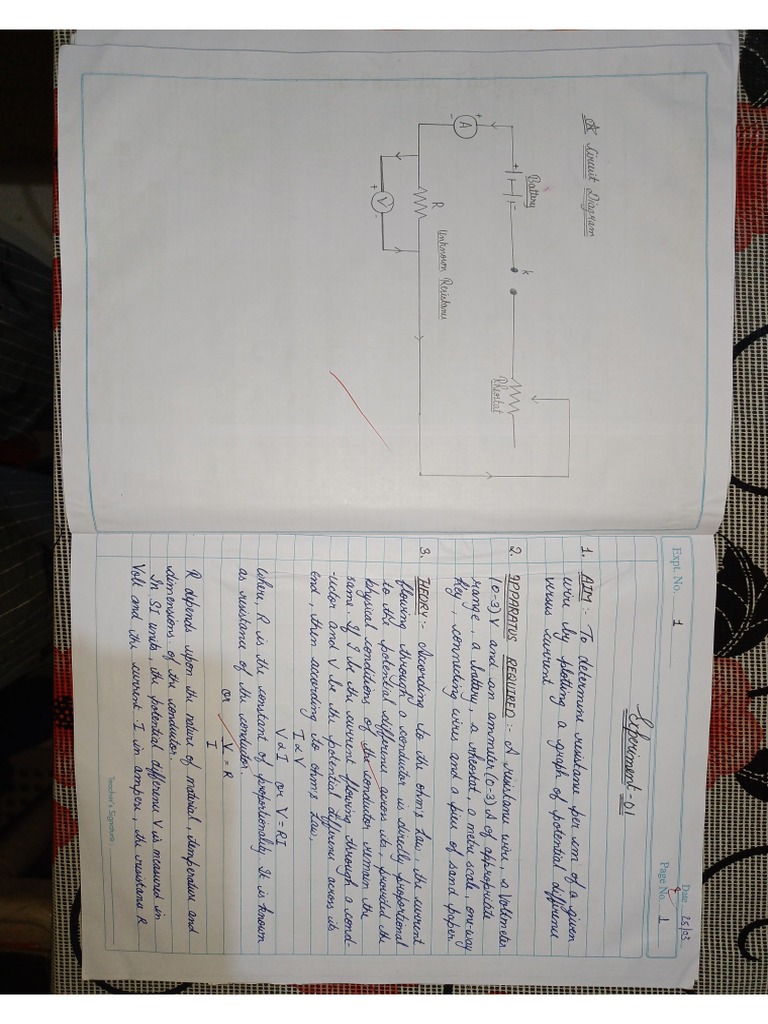 * Circuit Diagram
Battery
+
k
Rheostat
+
A
-
R
Unknown Resistance
+
V
-
Expt. No. 1
Date 25/03
Page No. 1
Experiment - 01
1. AIM :- To determine resistance per cm of a given
wire by plotting a graph of potential difference
versus current
2. APPARATUS REQUIRED :- A resistance wire, a voltmeter
(0-3) V and an ammeter (0-3) A of appropriate
range, a battery, a rheostat, a metre scale, one-way
key, connecting wires and a piece of sand paper.
3. THEORY :- According to the ohm's Law, the current
flowing through a conductor is directly proportional
to the potential difference across its, provided the
physical conditions of the conductor remain the
same. If I be the current flowing through a cond-
-uctor and V be the potential difference across its
end, then according to ohm's Law,
I ∝ V
V ∝ I or V = RI
where, R is the constant of proportionality. It is known
as resistance of the conductor.
or V/I = R
R depends upon the nature of material, temperature and
dimensions of the conductor.
In SI units, the potential difference V is measured in
Volt and the current I in ampere, the resistance R
Teacher's Signature